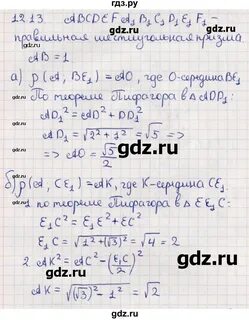 12.13. ABCDEFA₁B₁C₁D₁E₁F₁ –
правильная шестиугольная призма
AB = 1
а) ρ(A, BE₁) = AO, где O-середина BE₁
По теореме Пифагора в ΔADD₁:
AD₁² = AD² + DD₁²
AD₁ = √(2² + 1²) = √5 =>
=> AO = √5/2
б) ρ(A, CE₁) = AK, где K-середина CE₁.
1 по теореме Пифагора в ΔEE₁C:
E₁C² = E₁E² + EC²
E₁C = √(1² + (√3)²) = √4 = 2
2 AK² = AC² – (E₁C/2)²
AK = √((√3)² – 1²) = √2